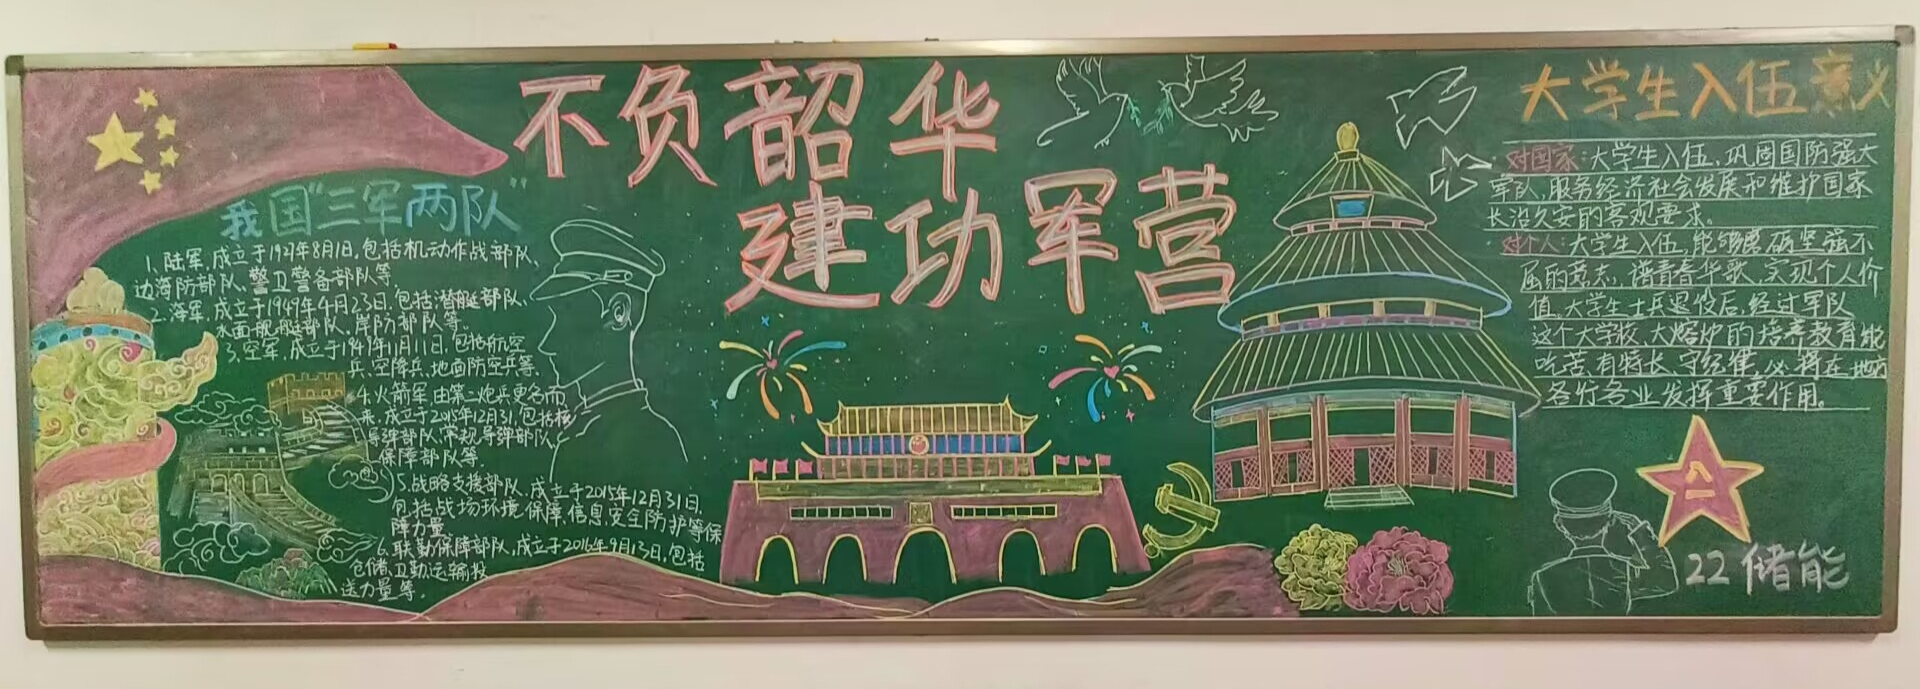 不负韶华
建功军营
我国"三军两队"
1、陆军,成立于1927年8月1日,包括机动作战部队、
边海防部队、警卫警备部队等,
2、海军,成立于1949年4月23日,包括潜艇部队、
水面舰艇部队、岸防部队等。
3、空军,成立于1949年11月11日,包括航空
兵、空降兵、地面防空兵等、
4、火箭军,由第二炮兵更名而
来,成立于2015年12月31,包括核
导弹部队,常规导弹部队,
保障部队等、
5、战略支援部队、成立于2015年12月31日,
包括战场环境保障,信息,安全防护等保
障力量,
6、联勤保障部队,成立于2016年9月13日,包括
仓储,卫勤,运输投
送力量等,
大学生入伍意义
·对国家:大学生入伍,巩固国防强大
军队,服务经济社会发展和维护国家
长治久安的客观要求。
·对个人:大学生入伍,能够磨砺坚强不
屈的意志,谱青春华歌,实现个人价
值,大学生士兵退役后,经过军队
这个大学校,大熔炉的培养教育能
吃苦,有特长,守纪律,必将在地方
各行各业发挥重要作用。
八一
22储能